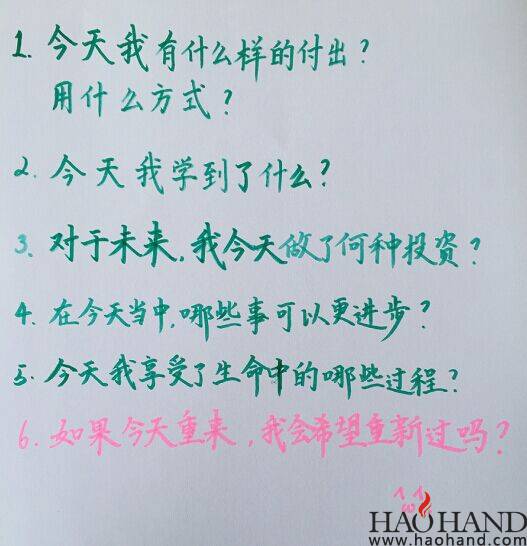 1. 今天我有什么样的付出？
用什么方式？
2. 今天我学到了什么？
3. 对于未来，我今天做了何种投资？
4. 在今天当中，哪些事可以更进步？
5. 今天我享受了生命中的哪些过程？
6. 如果今天重来，我会希望重新过吗？
HAOHAND
www.haohand.com